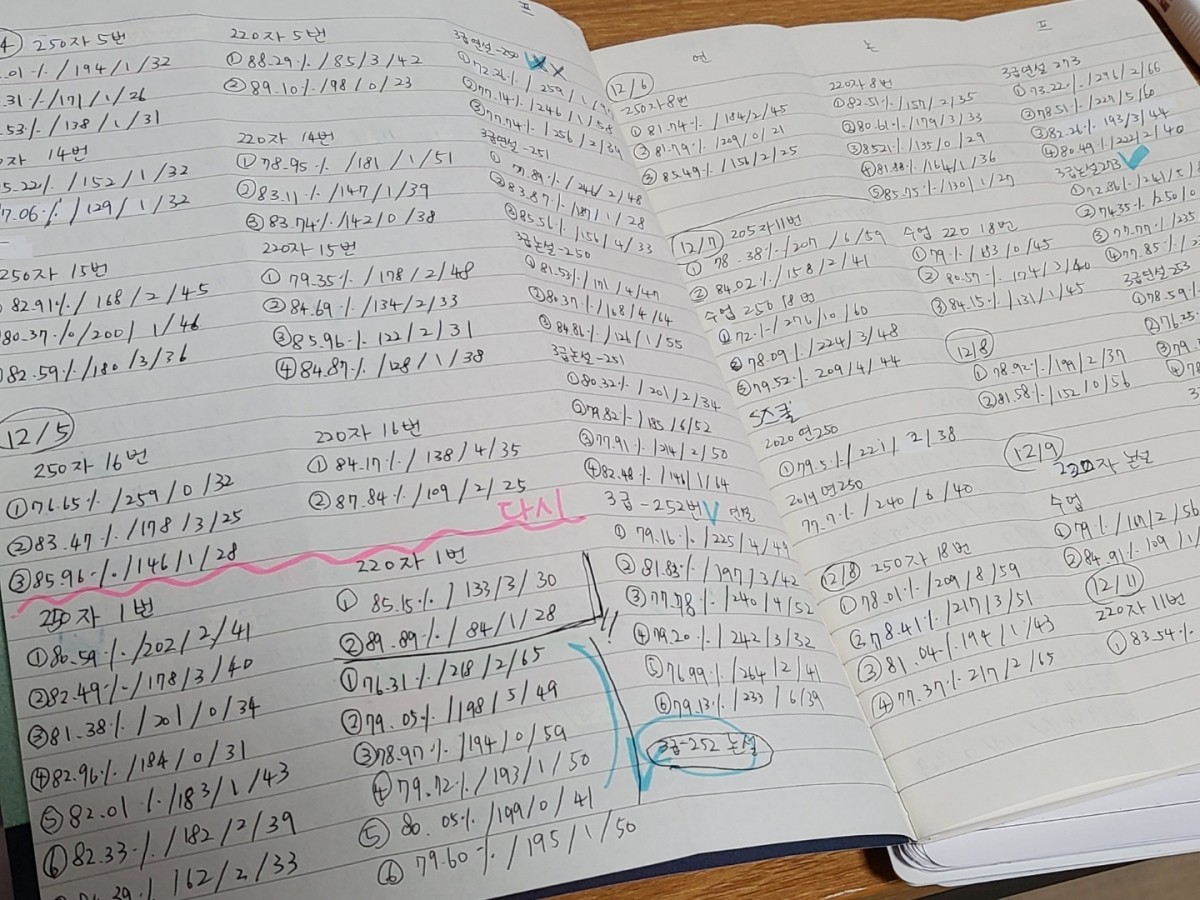 프
250자 5번
.01% / 194 / 1 / 32
.31% / 171 / 1 / 26
.53% / 138 / 1 / 31
14번
5.22% / 152 / 1 / 32
7.06% / 129 / 1 / 32
250자 15번
82.91% / 168 / 2 / 45
80.37% / 200 / 1 / 46
82.59% / 180 / 3 / 36
12/5
250자 16번
① 76.65% / 259 / 0 / 32
② 83.47% / 178 / 3 / 25
③ 85.96% / 146 / 1 / 28
250자 1번
① 80.59% / 202 / 2 / 41
② 82.49% / 178 / 3 / 40
③ 81.38% / 201 / 0 / 34
④ 82.96% / 184 / 0 / 31
⑤ 82.01% / 183 / 1 / 43
⑥ 82.33% / 182 / 2 / 39
162 / 2 / 33
220자 5번
① 88.29% / 85 / 3 / 42
② 89.10% / 98 / 0 / 23
220자 14번
① 78.95% / 181 / 1 / 51
② 83.11% / 147 / 1 / 39
③ 83.74% / 142 / 0 / 38
220자 15번
① 79.35% / 178 / 2 / 48
② 84.69% / 134 / 2 / 33
③ 85.96% 122 / 2 / 31
④ 84.87% / 128 / 1 / 38
220자 16번
① 84.17% / 138 / 4 / 35
② 87.84% / 109 / 2 / 25
다시
220자 1번
① 85.15% / 133 / 3 / 30
② 89.89% / 84 / 1 / 28
!!
① 76.31% / 218 / 2 / 65
② 79.05% / 198 / 5 / 49
③ 78.97% / 194 / 0 / 59
④ 79.72% / 193 / 1 / 50
⑤ 80.05% / 199 / 0 / 41
⑥ 79.60% / 195 / 1 / 50
3급연설-250
① 72.26% / 259 / 1
② 77.14% / 246 / 1 / 58
③ 77.74% / 256 / 2 / 39
3급연설-251
① 77.89% / 246 / 2 / 48
② 83.87% / 187 / 1 / 28
③ 85.56% / 156 / 4 / 33
3급논설-250
① 81.53% / 171 / 4 / 47
② 80.37% / 168 / 4 / 64
③ 84.81% / 126 / 1 / 55
3급논설-251
① 80.32% / 201 / 2 / 34
② 79.82% / 185 / 6 / 52
③ 77.91% / 214 / 2 / 50
④ 82.48% / 146 / 1 / 64
3급-252번 연설
① 79.16% / 225 / 4 / 49
② 81.83% / 197 / 3 / 42
③ 77.78% / 240 / 4 / 52
④ 79.20% / 242 / 3 / 32
⑤ 76.99% / 264 / 2 / 41
⑥ 79.13% / 233 / 6 / 39
3급-252 논설
연 논 프
12/6
250자 8번
① 81.74% / 184 / 2 / 45
② 81.79% / 209 / 0 / 21
③ 85.49% / 156 / 2 / 25
12/7 205자 11번
① 78.38% / 207 / 6 / 59
② 84.02% / 158 / 2 / 41
수업 250 18번
① 72.1% / 276 / 10 / 60
② 78.09% / 224 / 3 / 48
③ 79.52% 209 / 4 / 44
2020 연250
① 79.5% / 221 / 2 / 38
2019 연250
77.7% / 240 / 6 / 40
12/8 250자 18번
① 78.01% / 209 / 8 / 59
② 78.41% / 217 / 3 / 51
③ 81.04% / 194 / 1 / 43
④ 77.37% 217 / 2 / 65
220자 8번
① 82.51% / 157 / 2 / 35
② 80.61% / 179 / 3 / 33
③ 85.21% / 135 / 0 / 29
④ 81.88% / 164 / 1 / 36
⑤ 85.75% / 130 / 1 / 27
수업 220 18번
① 79% / 183 / 0 / 45
② 80.57% / 174 / 3 / 40
③ 84.15% / 131 / 1 / 45
12/8
① 78.92% / 199 / 2 / 37
② 81.58% / 152 / 0 / 56
12/9
수업
① 79% / 167 / 2 / 56
② 84.91% 109 / 1 /
12/11
220자 11번
① 83.54%
3급연설 273
① 73.22% / 276 / 2 / 66
② 78.51% / 227 / 5 / 60
③ 82.26% 193 / 3 / 44
④ 80.49% / 222 / 2 / 40
3급논설273
① 72.86% / 241 / 5 /
② 74.35% / 250 / 0
③ 77.77% / 235
④ 77.85% / 2
3급연설 253
① 78.59%
② 76.25
③ 79.
④ 78
3